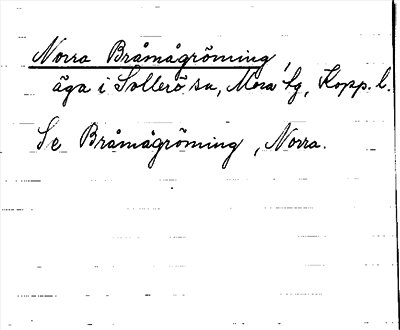 Norra Bråmågröming,
äga i Sollerö sn, Mora tg, Kopp. l.
Se Bråmågröming, Norra.